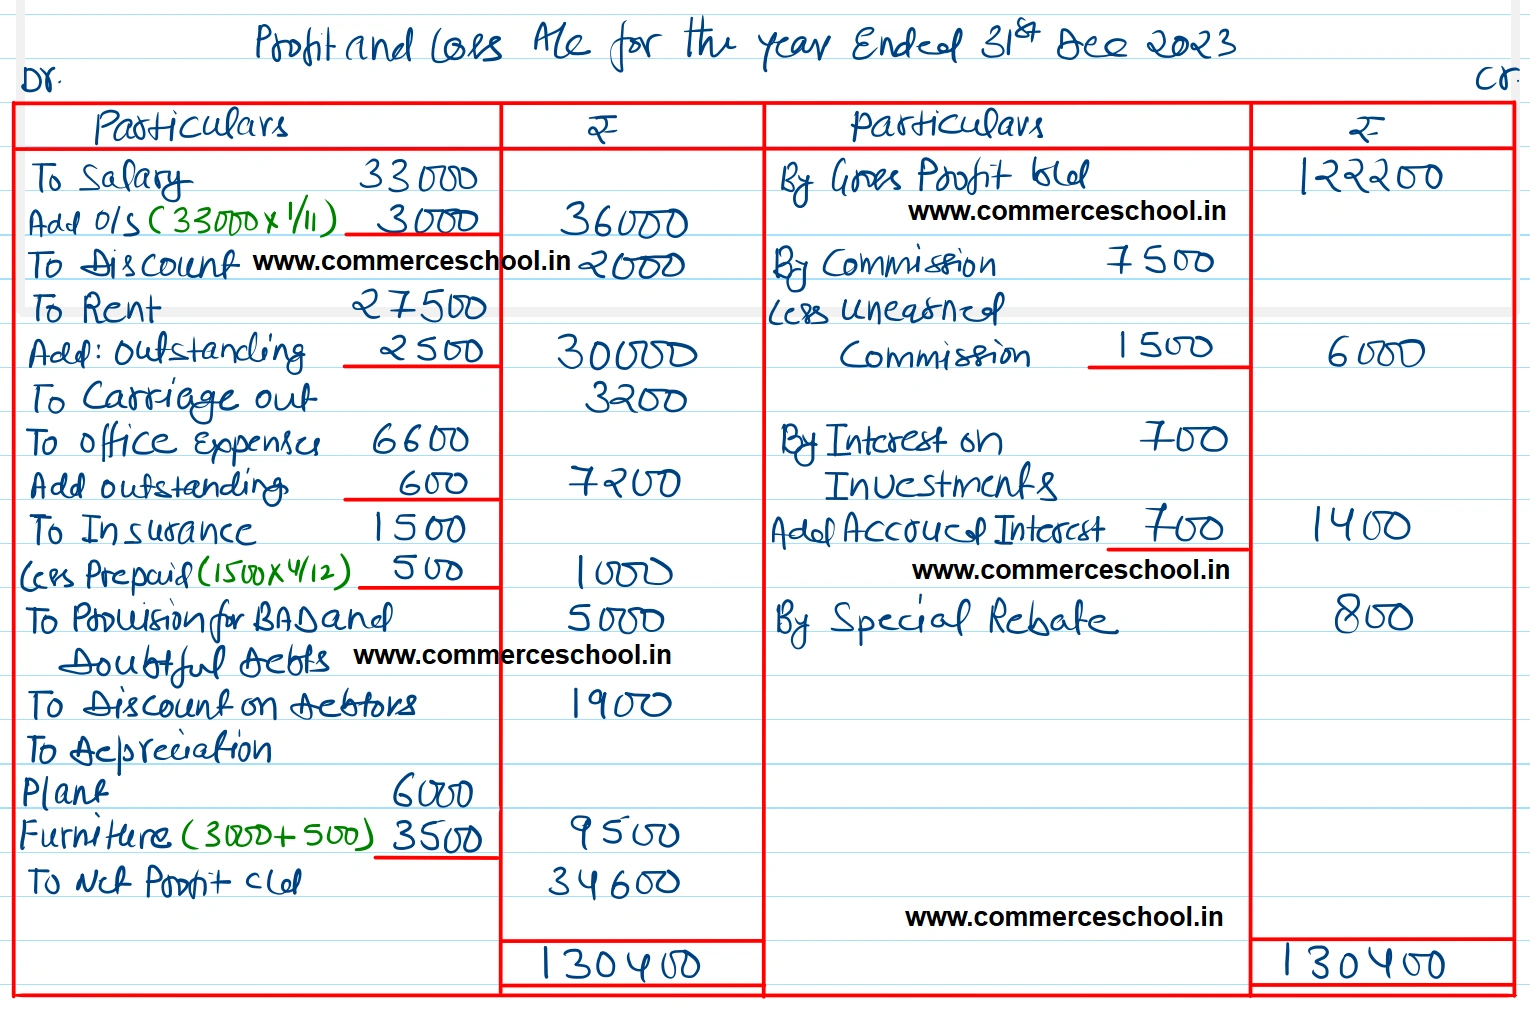 Profit and Loss A/c for the year Ended 31st Dec 2023
Dr. Cr.
Particulars ₹ Particulars ₹
To Salary 33000 By Gross Profit b/d 122200
www.commerceschool.in
Add O/S (33000 x 1/11) 3000 36000
To Discount www.commerceschool.in 2000 By Commission 7500
To Rent 27500 Less Unearned
Add: Outstanding 2500 30000 Commission 1500 6000
To Carriage out 3200
To Office Expenses 6600 By Interest on 700
Add outstanding 600 7200 Investments
To Insurance 1500 Add Accrued Interest 700 1400
Less Prepaid (1500 x 4/12) 500 1000 www.commerceschool.in
To Provision for BAD and 5000 By Special Rebate 800
Doubtful Debts www.commerceschool.in
To Discount on Debtors 1900
To Depreciation
Plant 6000
Furniture (3000 + 500) 3500 9500
To Net Profit c/d 34600
www.commerceschool.in
130400 130400